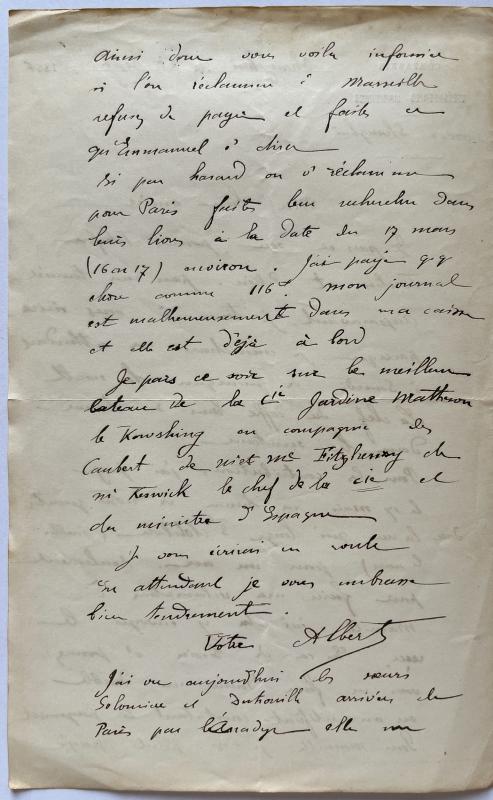 ainsi donc vous voila informée
si l'on réclamme à Marseille
refusez de payer et faites ce
qu'Emmanuel à dira
Si par hasard on réclamme
pour Paris faites leur rechercher dans
leurs livres à la date du 17 mars
(16 ou 17) environ. J'ai payé qq
chose comme 116 mon journal
est malheureusement dans ma caisse
et elle est déjà à bord
Je pars ce soir sur le meilleur
bateau de la Cie Jardine Matheson
le Kowshing en compagnie des
Caubert de Me Fitzhenry de
Mr Keswick le chef de la Cie et
du ministre d'Espagne
Je vous écrirai en route
En attendant je vous embrasse
bien tendrement.
Votre Albert
J'ai vu aujourd'hui les sœurs
et arrivées de
Paris par elle